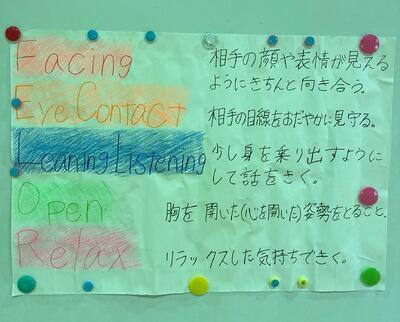 Facing
相手の顔や表情が見える
ようにきちんと向き合う。
Eye Contact
相手の目線をおだやかに見守る。
Leaning Listening
少し身を乗り出すように
して話をきく。
Open
胸を開いた(心を開いた)姿勢をとること。
Relax
リラックスした気持ちできく。